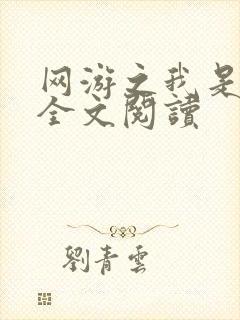 网游之我是
全文閱讀
劉青雲